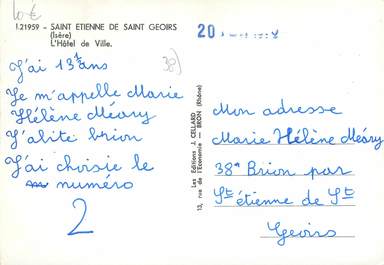 10 €
I.21959 - SAINT ETIENNE DE SAINT GEOIRS
(Isère)
L'Hôtel de Ville.
38)
J'ai 13 ans
Je m'appelle Marie
Hélène Méary
J'abite brion
J'ai choisie le
numéro
2
Les Editions J. CELLARD
13, rue de l'Economie — BRON (Rhône)
20
Mon adresse
Marie Hélène Méary
38 Brion par
St étienne de St
Geoirs